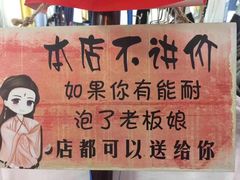 本店不讲价
如果你有能耐
泡了老板娘
店都可以送给你